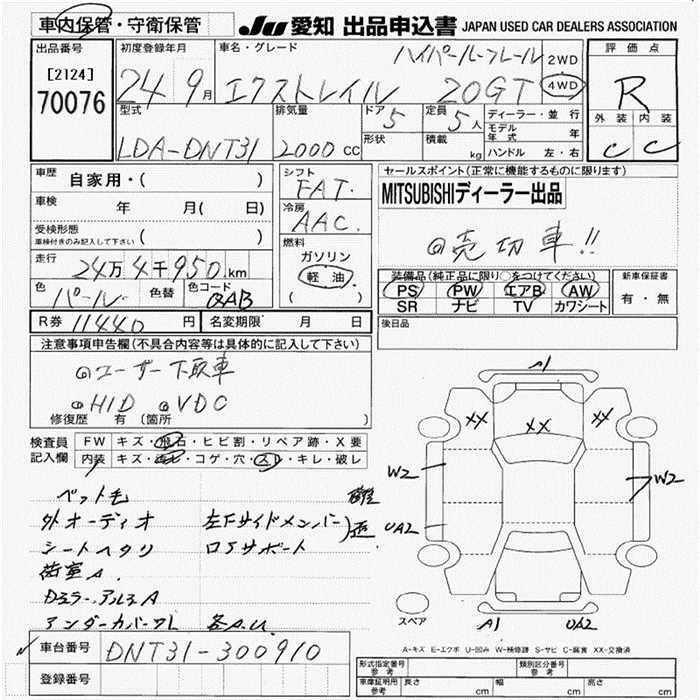 車内保管・守衛保管
JU 愛知 出品申込書 JAPAN USED CAR DEALERS ASSOCIATION
出品番号
[2124]
70076
初度登録年月
24 9月
車名・グレード
ハイパールーフレール
エクストレイル 20GT
2WD
4WD
評価点
R
外装 内装
C C
型式
LDA-DNT31
排気量
2000 CC
ドア 5
形状
定員 5人
積載 kg
ディーラー・並行
モデル年式 年
ハンドル 左・右
車歴 自家用・( )
車検 年 月( 日)
受検形態
車検付きのみ記入して下さい ( )
走行 24万4千950 km
色 パール 色替 色コード QAB
シフト
FAT.
冷房
AAC.
燃料
ガソリン
軽油
( )
セールスポイント(正常に機能するものに限ります)
MITSUBISHIディーラー出品
◎売切車!!
装備品(純正品に限り○をつけてください)
PS PW エアB AW
SR ナビ TV カワシート
新車保証書
有・無
R券 11440 円 名変期限 月 日
後日品
注意事項申告欄(不具合内容等は具体的に記入して下さい)
◎ユーザー下取車
◎HID ◎VDC
修復歴 有 (箇所 )
検査員記入欄
FW キズ・飛石・ヒビ割・リペア跡・X要
内装 キズ・コゲ・穴・スレ・キレ・破レ
ペット毛
外オーディオ 左下サイドメンバー
シートヘタリ ロアサポート
荷室A.
Dミラー・アルミA
アンダーカバーワレ 各A.U.
A1
XX XX XX
W2 W2
UA2
A1 UA2
スペア
A-キズ E-エクボ U-凹み W-補修跡 S-サビ C-腐食 XX-交換済
車台番号 DNT31-300910
登録番号
形式指定番号 参考
類別区分番号 参考
車庫証明用 参考 長さ cm 幅 cm 高さ cm